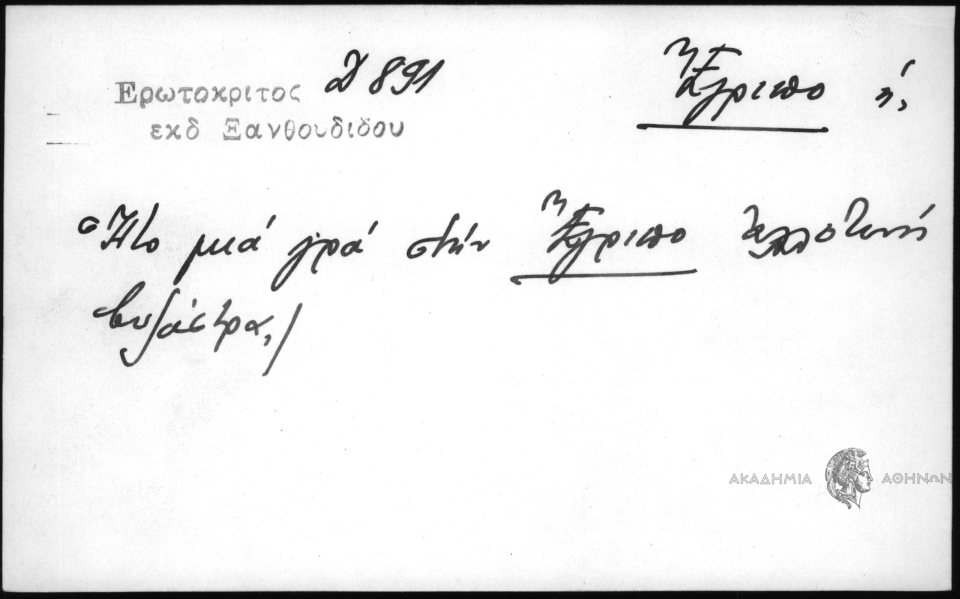 Ερωτοκριτος Δ 891
εκδ Ξανθουδιδου
Ἔγριπο ἡ,
Ἦτο μιά γρά στήν Ἔγριπο
βυζάστρα,/
ΑΚΑΔΗΜΙΑ ΑΘΗΝΩΝ